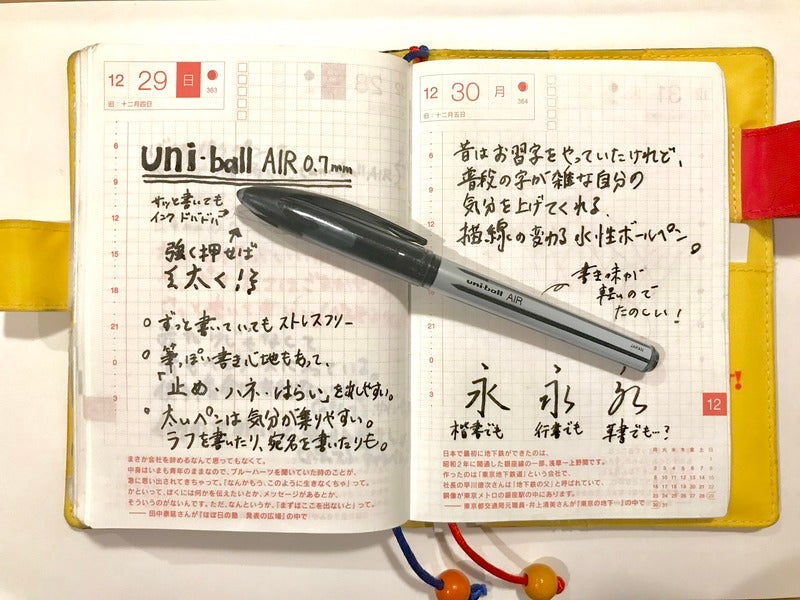 12 29 日
363
旧：十二月四日
uni-ball AIR 0.7mm
ザッと書いても
インク ドバドバ
強く押せば
太く！
ずっと書いていてもストレスフリー
筆っぽい書き心地もあって、
「止め・ハネ・はらい」を出しやすい。
太いペンは気分が乗りやすい。
ラフを書いたり、宛名を書いたりも。
まさか会社を辞めるなんて思ってもなくて。
中身はいまも青年のままなので、ブルーハーツを聞いていた時のことが、
急に思い出されてきちゃって。「なんかもう、このように生きなくちゃ」って。
かといって、ぼくには何かを伝えたいとか、メッセージがあるとか、
そういうのがないんです。ただ、なんというか、「まずはここを出ないと」って。
——田中泰延さんが『ほぼ日の塾 発表の広場』の中で
12 30 月
364
旧：十二月五日
昔はお習字をやっていたけれど、
普段の字が雑な自分の
気分を上げてくれる、
描線の変わる水性ボールペン。
書き味が
軽いので
たのしい！
uni-ball AIR
JAPAN
永 永 永
楷書でも 行書でも 草書でも…？
12
日本で最初に地下鉄ができたのは、
昭和2年に開通した銀座線の一部、浅草ー上野間です。
作ったのは「東京地下鉄道」という会社で、
社長の早川徳次さんは「地下鉄の父」と呼ばれていて、
銅像が東京メトロの銀座駅の中にあります。
——東京都交通局元職員・井上清美さんが『東京の地下…』の中で
月 火 水 木 金 土 日
1
2 3 4 5 6 7 8
9 10 11 12 13 14 15
16 17 18 19 20 21 22
23 24 25 26 27 28 29
30 31